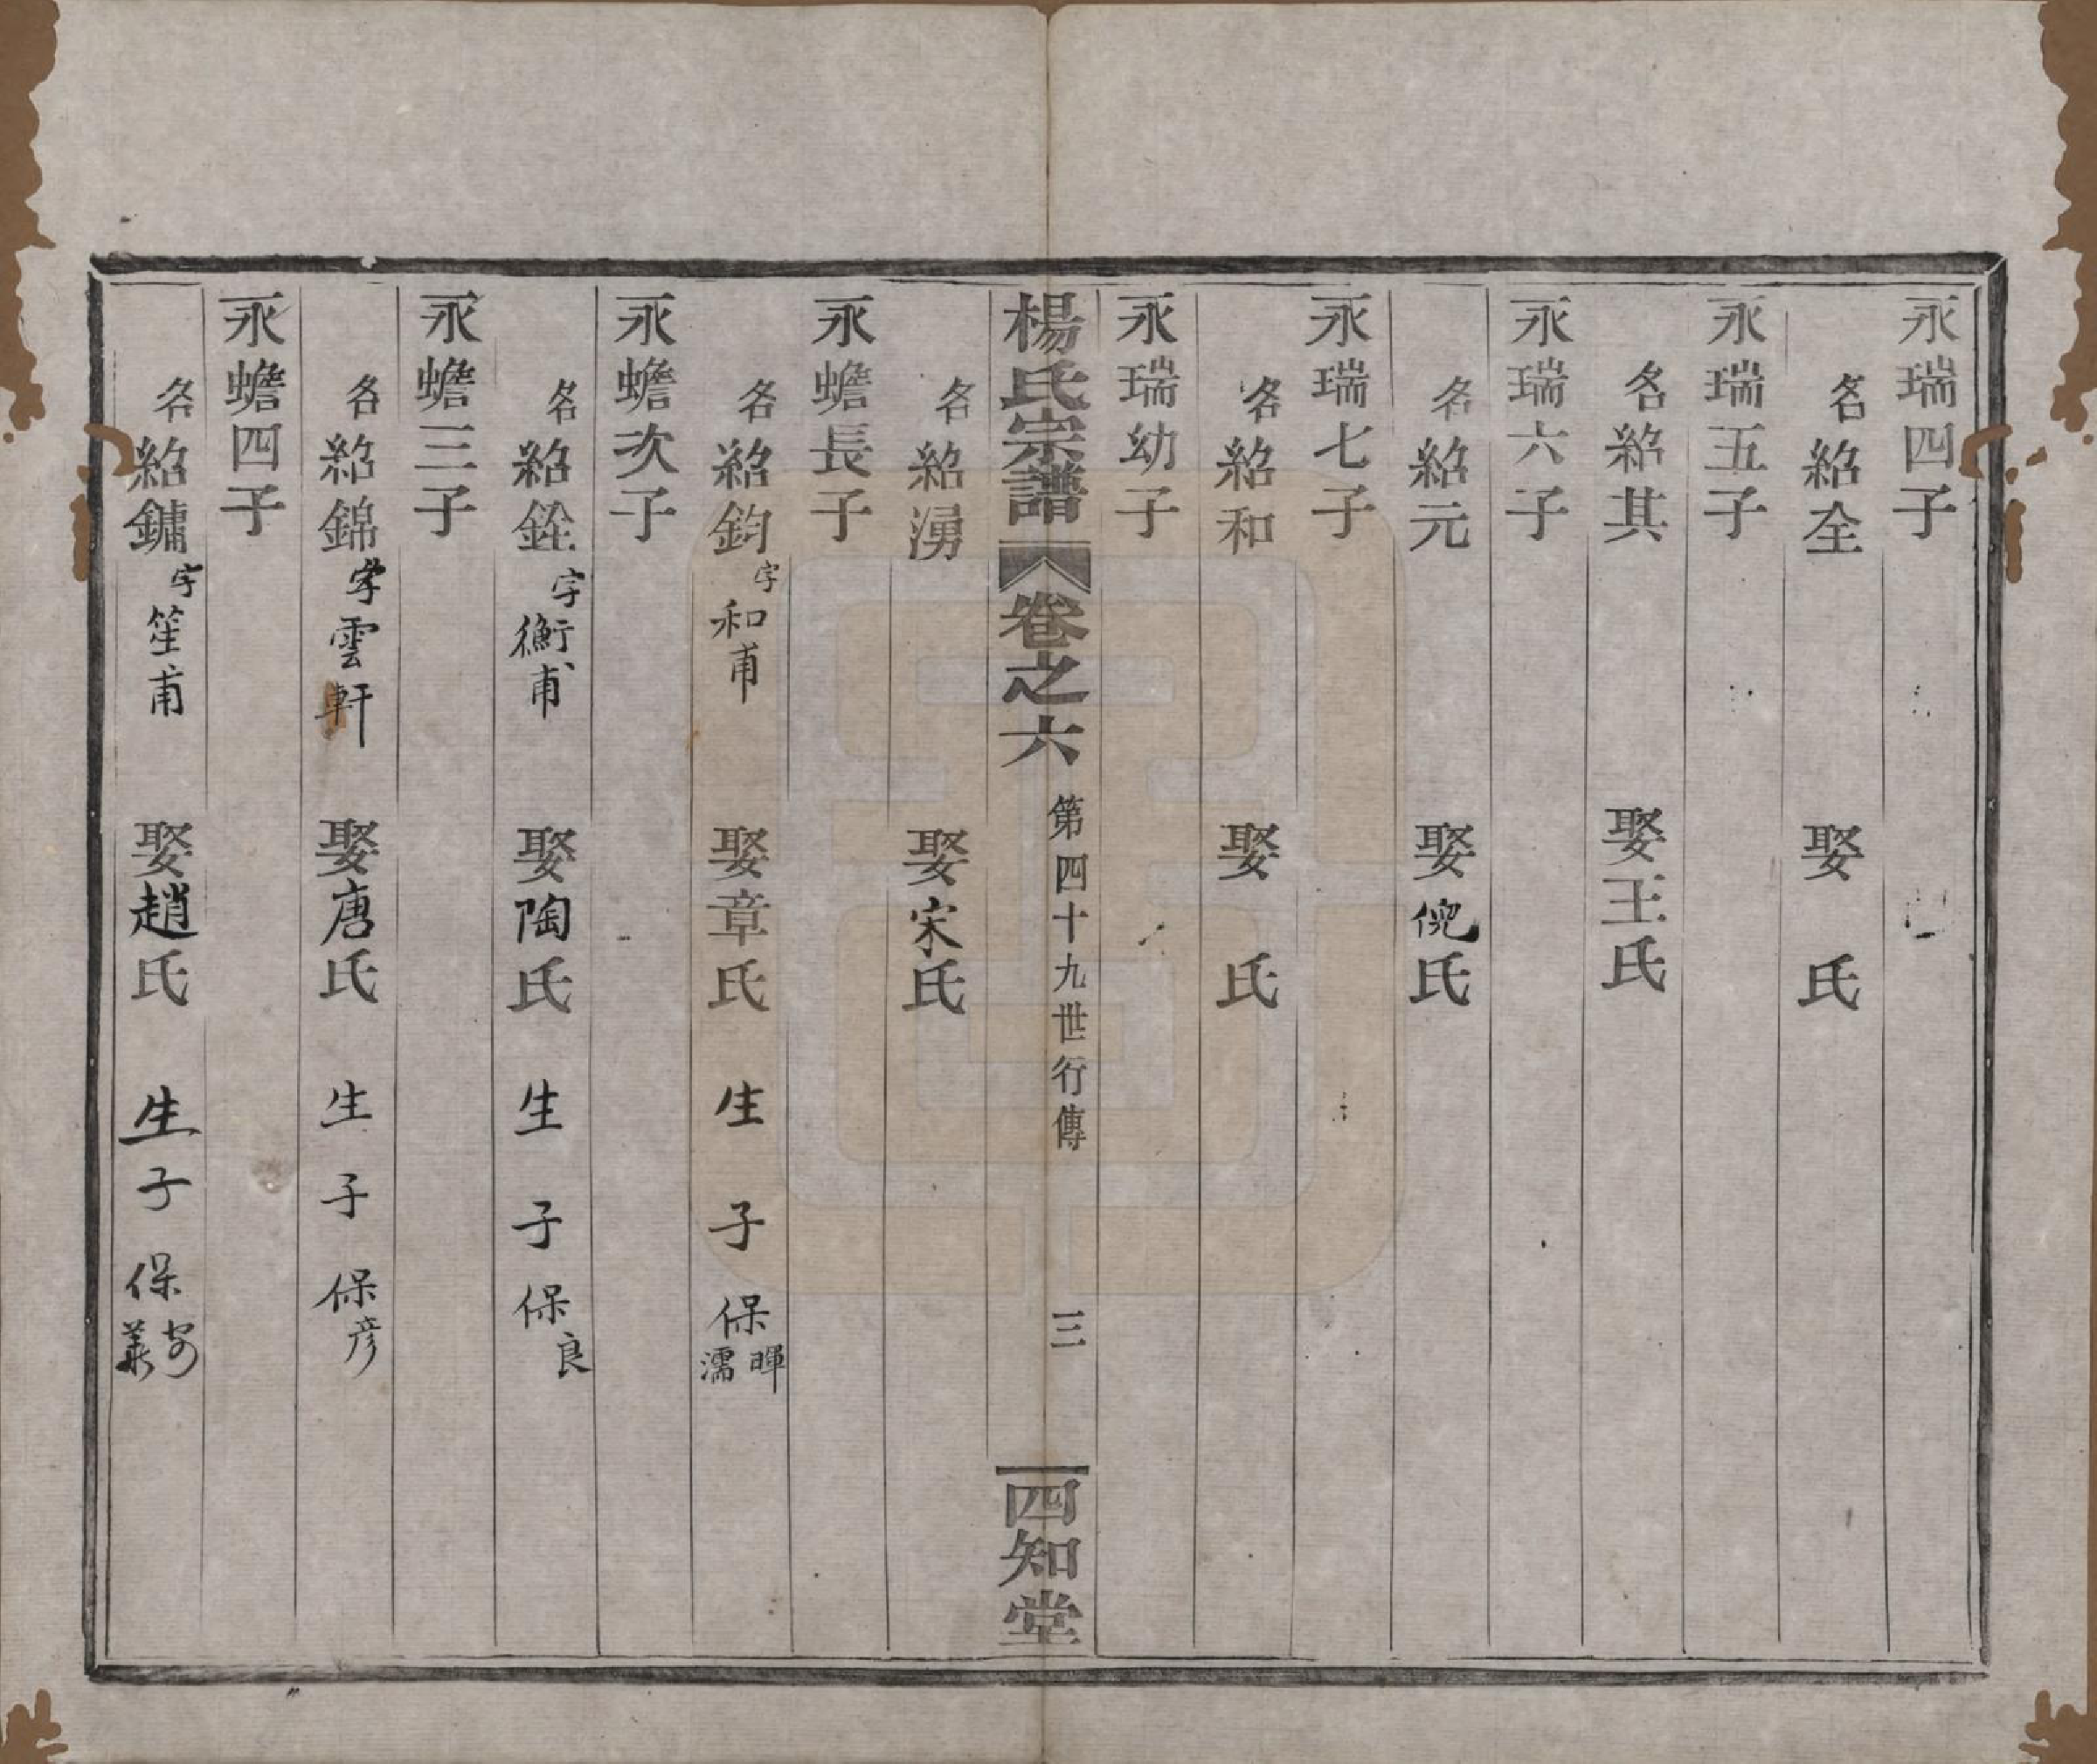 永瑞四子
名紹全　娶　氏
永瑞五子
名紹其　娶王氏
永瑞六子
名紹元　娶倪氏
永瑞七子
名紹和　娶　氏
永瑞幼子
楊氏宗譜　卷之六　第四十九世行傳　三　四知堂
名紹湧　娶宋氏
永蟾長子
名紹鈞　字和甫　娶章氏　生子保暉濡
永蟾次子
名紹銓　字衡甫　娶陶氏　生子保良
永蟾三子
名紹錦　字雲軒　娶唐氏　生子保彦
永蟾四子
名紹鏞　字笙甫　娶趙氏　生子保